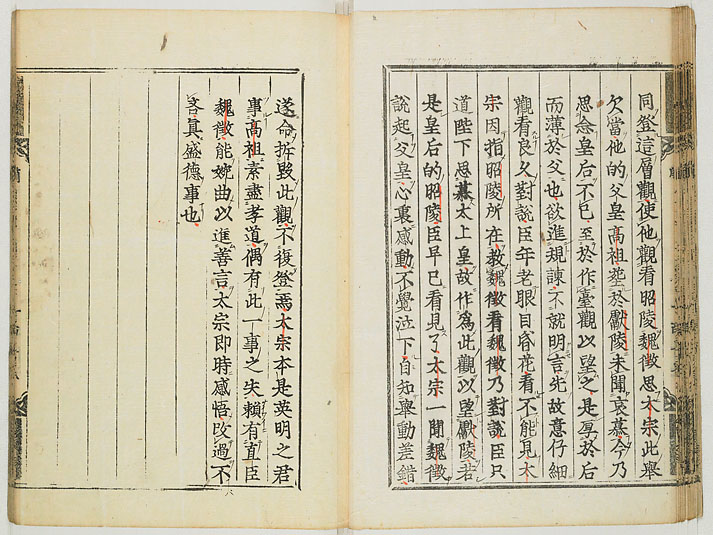 同登這層觀使他觀看昭陵魏徵思太宗此舉
欠當他的父皇高祖葬於獻陵未聞哀慕今乃
思念皇后不已至於作臺觀以望之是厚於后
而薄於父也欲進規諫不就明言先故意仔細
觀看良久對說臣年老眼目昏花看不能見太
宗因指昭陵所在教魏徵看魏徵乃對說臣只
道陛下思慕太上皇故作為此觀以望獻陵若
是皇后的昭陵臣早已看見了太宗一聞魏徵
說起父皇心裏感動不覺泣下自知舉動差錯
遂命拆毀此觀不復登焉太宗本是英明之君
事高祖素盡孝道偶有此一事之失賴有直臣
魏徵能婉曲以進善言太宗即時感悟改過不
吝真盛德事也